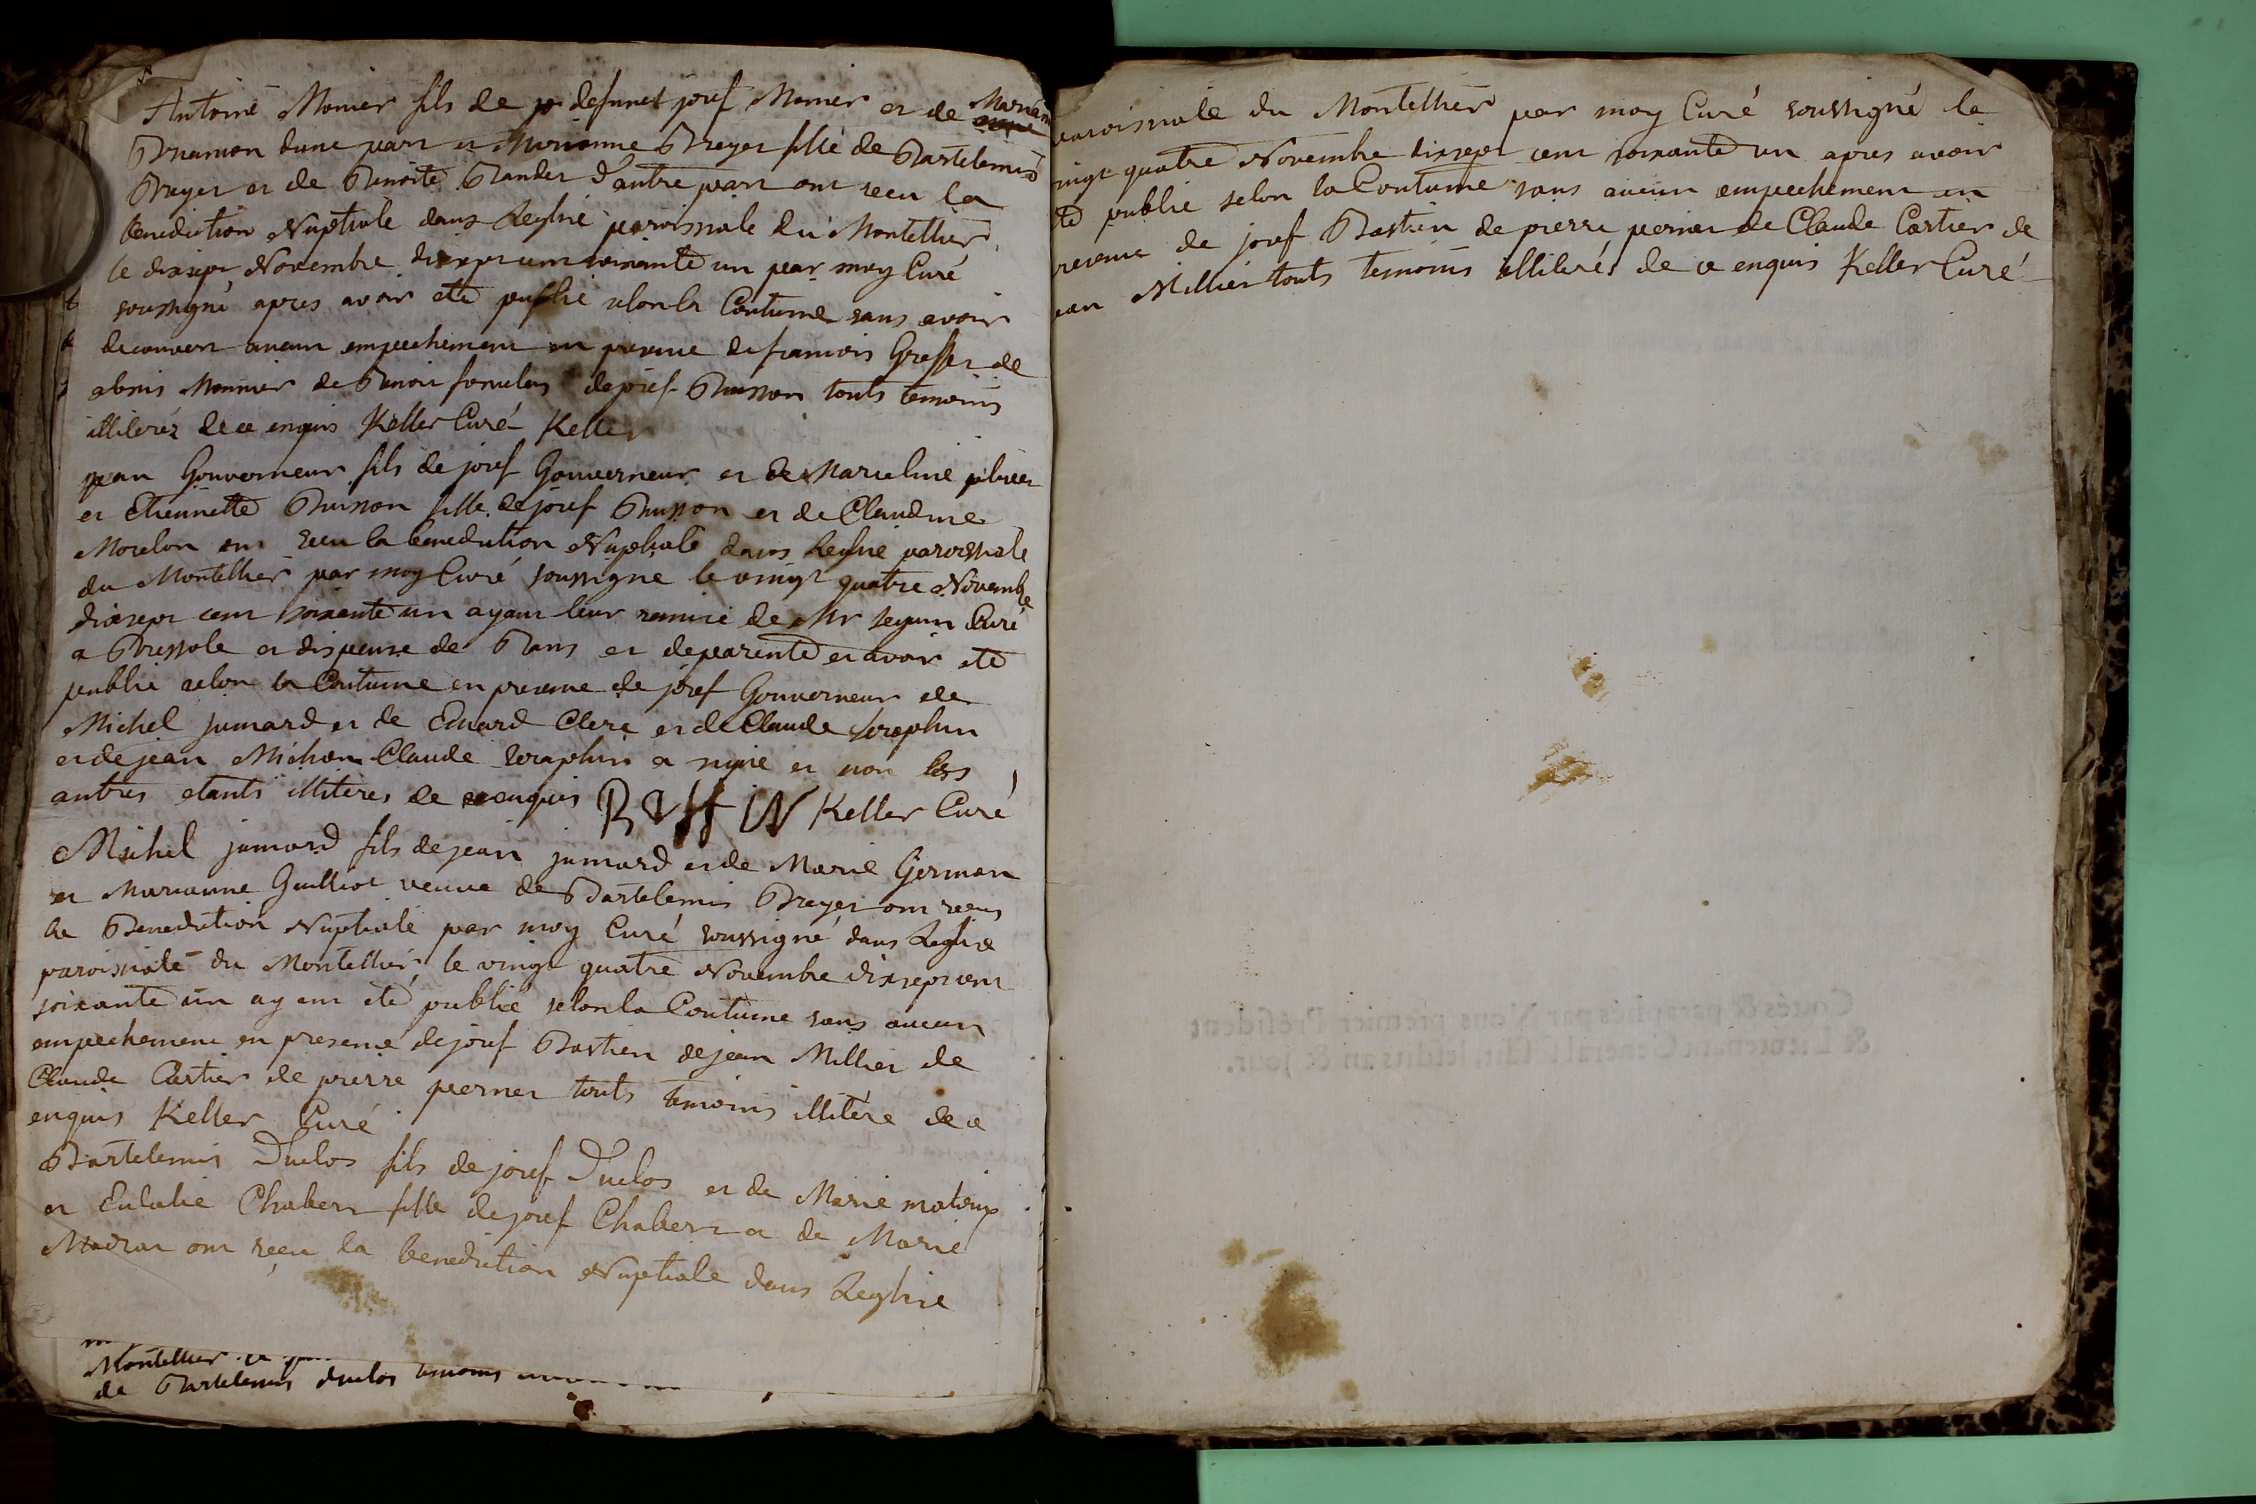 Antoine Monier fils de defunct josef Monier et de Marianne
Bruamon dune part et Marianne Breyer fille de Bartelemis
Breyer et de Benoite Bandet d'autre part ont recu la
benediction Nuptiale dans Leglise paroissiale du Montellier
le dixsept Novembre dixsept cent soixante un par moy Curé
soussigné apres avoir eté publie selon la Coutume sans avoir
decouvert aucun empechement en presence de francois de
Monnier de Benoit de josef Buisson touts temoins
illiterez de ce enquis Keller Curé Keller
jean Gouverneur fils de josef Gouverneur et de Marceline
et Etiennette Buisson fille de josef Buisson et de Claudine
Morelon ont recu la benediction Nuptiale dans Leglise paroissiale
du Montellier par moy Curé soussigne le vingt quatre Novembre
dixsept cent soixante un ayant leur remise de Mr Curé
a Bressole et dispense de Bans et de parenté et avoir eté
publie selon la Coutume en presence de josef Gouverneur de
Michel jumard et de Enard Clerc et de Claude seraphin
et de jean Michon Claude seraphin a signé et non les
autres etants illiteres de ce enquis Keller Curé
Michel jumard fils de jean jumard et de Marie German
et Marianne Guilliot veuve de Bartelemis Breyer ont recus
la Benediction Nuptiale par moy Curé soussigné dans Leglise
paroissiale du Montellier le vingt quatre Novembre dixsept cent
soixante un ayant eté publie selon la Coutume sans aucun
empechement en presence de josef Bastien de jean Millier de
Claude Cartier de pierre perner touts temoins illitere de ce
enquis Keller Curé
Bartelemis Duclos fils de josef Duclos et de Marie
et Eulalie Chabert fille de josef Chabert et de Marie
ont reçu la benediction Nuptiale dans Leglise
Montellier
de Bartelemis duclos temoins
paroissiale du Montellier par moy Curé soussigné le
vingt quatre Novembre dixsept cent soixante un apres avoir
eté publie selon la Coutume sans aucun empechement en
presence de josef Bastien de pierre perner de Claude Cartier de
jean Millier touts temoins illiterés de ce enquis Keller Curé
Cottés & paraphés par Nous premier Président
& Lieutenant Général, ledit an & jour.